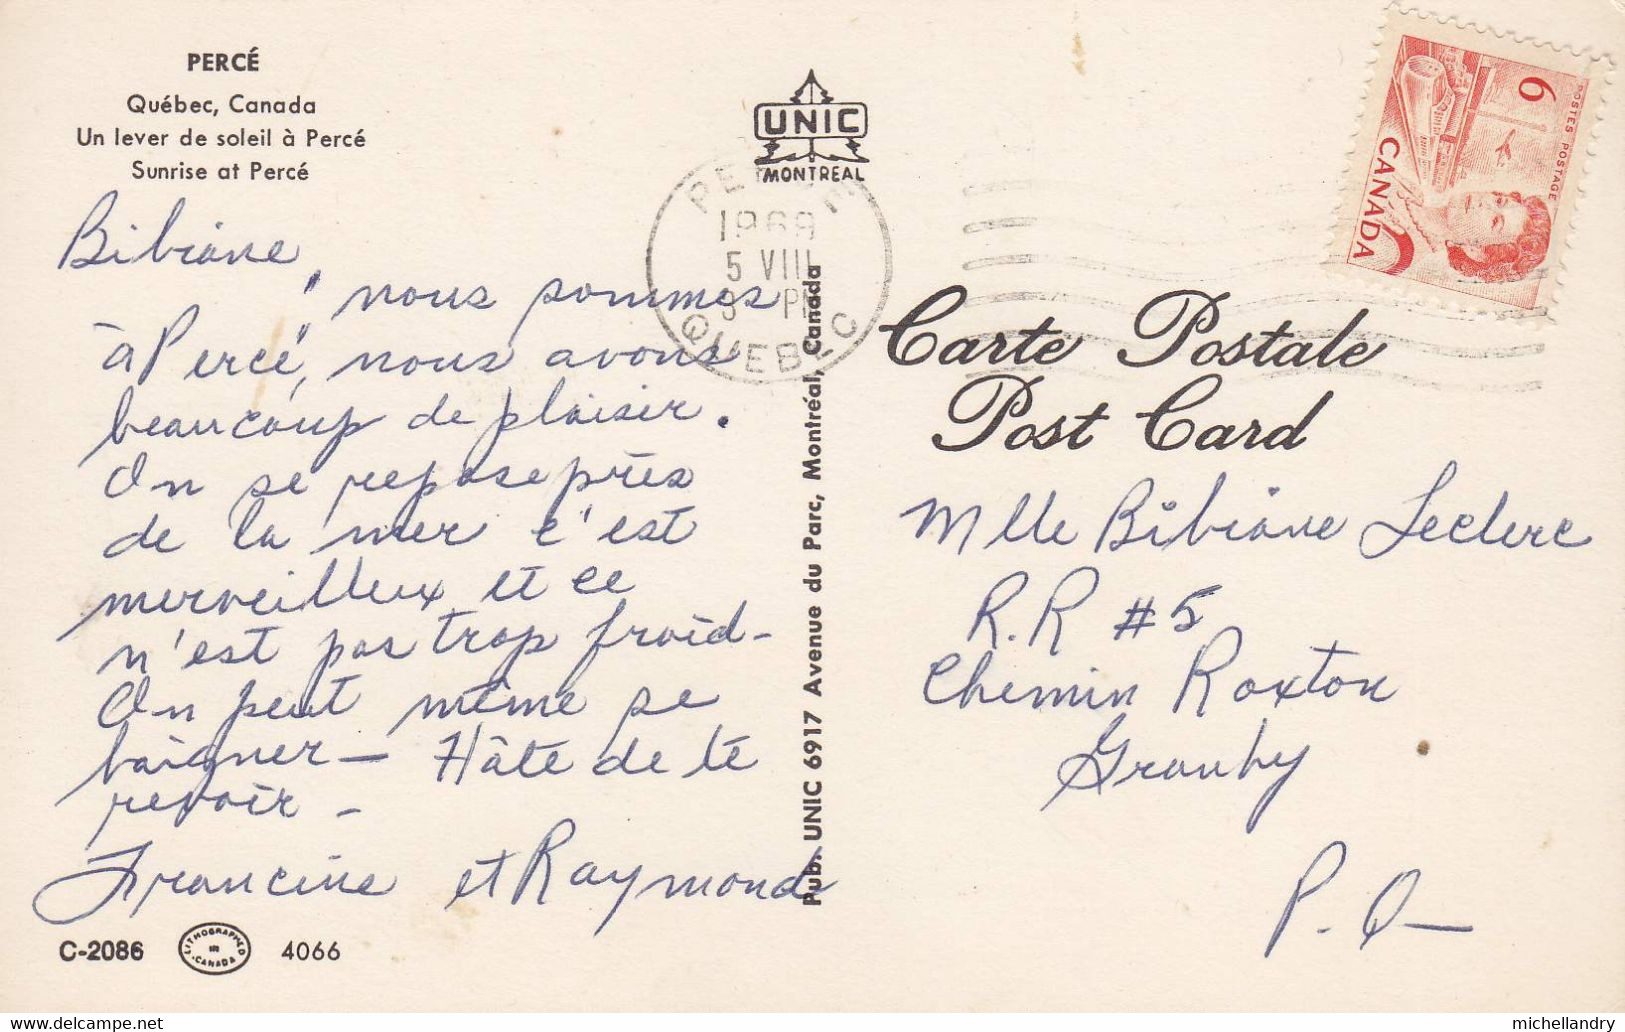 PERCÉ
Québec, Canada
Un lever de soleil à Percé
Sunrise at Percé
Bibiane,
nous sommes
à Percé, nous avons
beaucoup de plaisir.
On se repose près
de la mer c'est
merveilleux et ce
n'est pas trop froid-
On peut même se
baigner - Hâte de te
revoir -
Francine et Raymond
C-2086
LITHOGRAPHED IN CANADA
4066
UNIC
MONTREAL
PERCE
1969
5 VIII
PM
QUEBEC
Pub. UNIC 6917 Avenue du Parc, Montréal, Canada
6
POSTES POSTAGE
CANADA
Carte Postale
Post Card
Mlle Bibiane Leclerc
R.R #5
Chemin Roxton
Granby
P.Q-
delcampe.net
michellandry